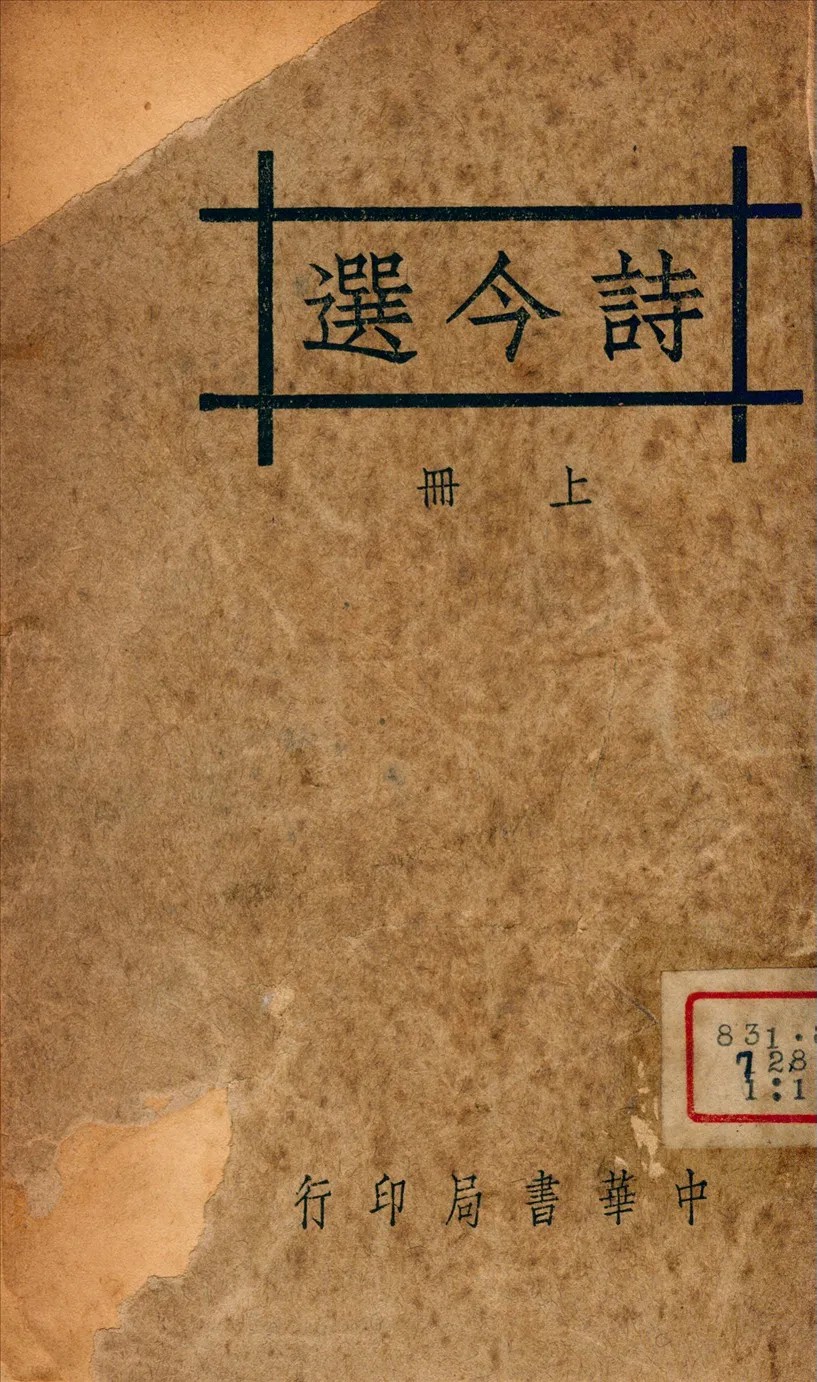 詩今選
上冊
831.8
728
1:1
中華書局印行